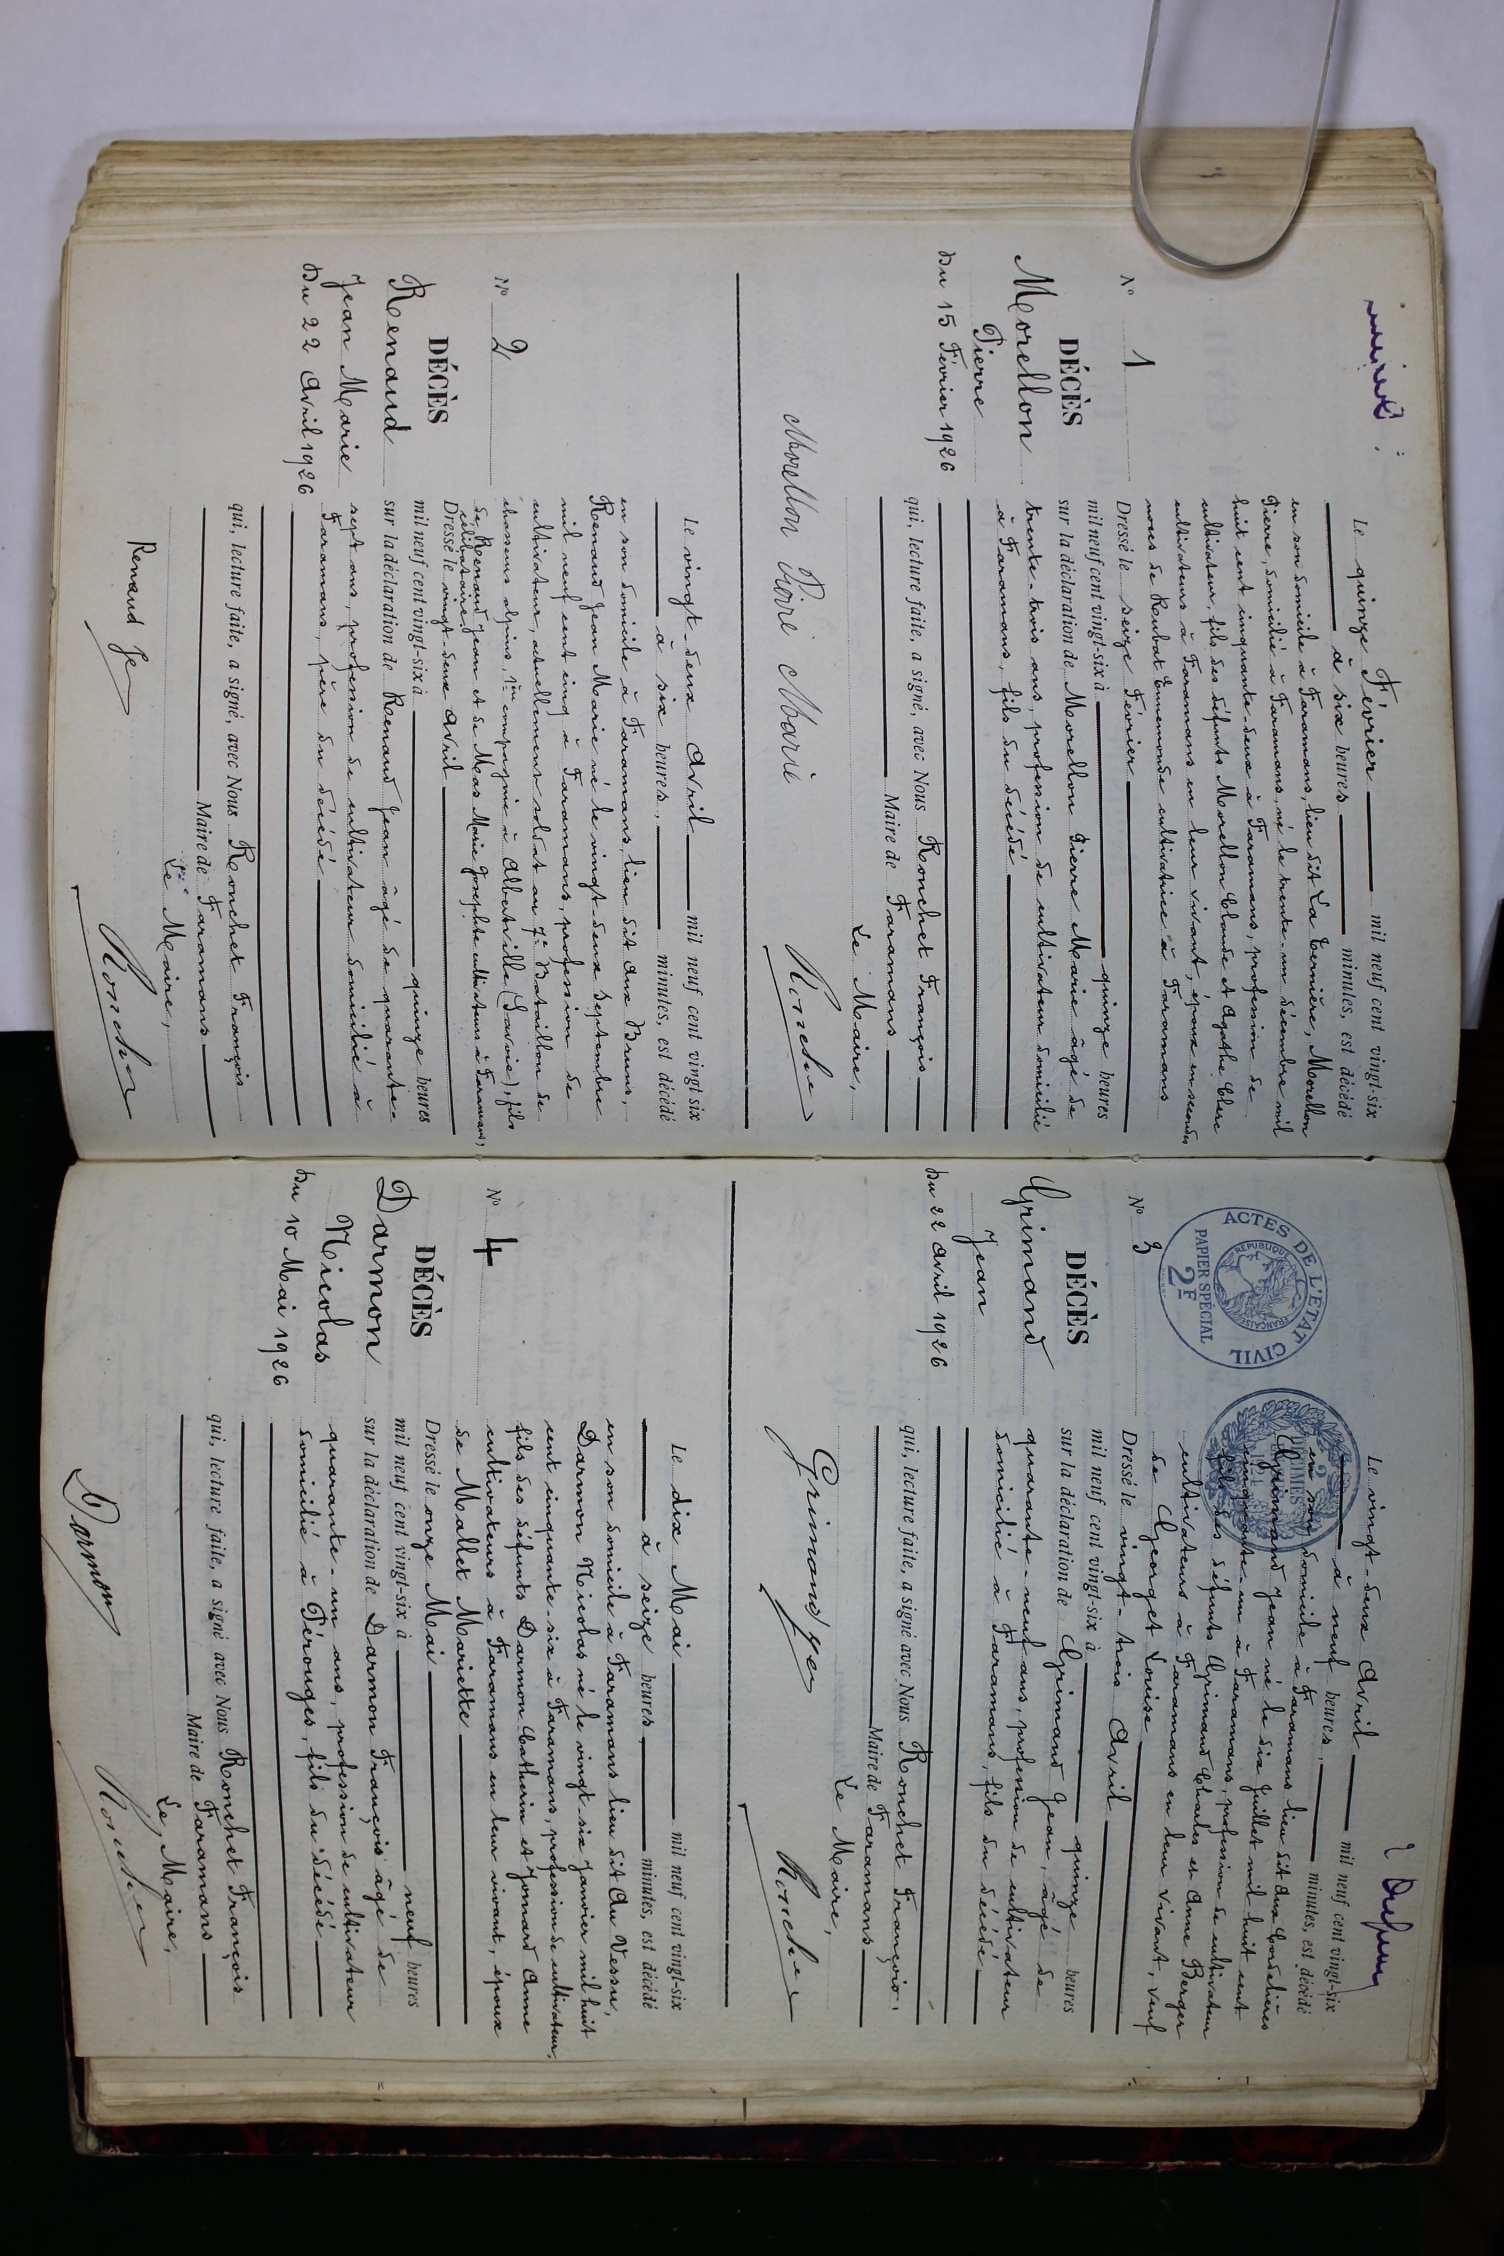 N° 1
DÉCÈS
Morellon
Pierre
Du 15 Février 1926
Le quinze Février mil neuf cent vingt-six
à six heures minutes, est décédé
en son domicile à Faramans, lieu dit La Bernière, Morellon
Pierre, domicilié à Faramans, né le trente-un décembre mil
huit cent cinquante-deux à Faramans, profession de
cultivateur, fils des défunts Morellon Claude et Agathe Cluc
cultivateurs à Faramans en leur vivant, époux en secondes
noces de Roubat Ennemonde cultivatrice à Faramans
Dressé le seize Février
mil neuf cent vingt-six à quinze heures
sur la déclaration de Morellon Pierre Marie âgé de
trente-trois ans, profession de cultivateur domicilié
à Faramans, fils du décédé
qui, lecture faite, a signé, avec Nous Ronchet François
Maire de Faramans
Le Maire,
Morellon Pierre Marie
Ronchet
N° 2
DÉCÈS
Renaud
Jean Marie
Du 22 Avril 1926
Le vingt-deux Avril mil neuf cent vingt six
à six heures, minutes, est décédé
en son domicile à Faramans, lieu dit aux Bruns,
Renaud Jean Marie né le vingt-deux septembre
mil neuf cent cinq à Faramans, profession de
cultivateur, actuellement soldat au 7e Bataillon de
chasseurs alpins, 1re compagnie à Albertville (Savoie), fils
de Renaud Jean et de Mas Marie Josephte cultivateurs à Faramans,
célibataire
Dressé le vingt-deux Avril
mil neuf cent vingt-six à quinze heures
sur la déclaration de Renaud Jean âgé de quarante-
sept ans, profession de cultivateur domicilié à
Faramans, père du décédé
qui, lecture faite, a signé, avec Nous Ronchet François
Maire de Faramans
Le Maire,
Renaud Je
Ronchet
ACTES DE L'ÉTAT CIVIL
RÉPUBLIQUE FRANÇAISE
PAPIER SPÉCIAL
2F
N° 3
DÉCÈS
Grimand
Jean
Du 22 Avril 1926
Le vingt-deux Avril mil neuf cent vingt-six
à neuf heures, minutes, est décédé
en son domicile à Faramans lieu dit aux Cordelières
Grimand Jean né le dix Juillet mil huit cent
cinquante-un à Faramans, profession de cultivateur
fils des défunts Grimand Charles et Anne Berger
cultivateurs à Faramans en leur vivant, veuf
de Georget Louise
Dressé le vingt-trois Avril
mil neuf cent vingt-six à quinze heures
sur la déclaration de Grimand Jean, âgé de
quarante-neuf ans, profession de cultivateur
domicilié à Faramans, fils du décédé
qui, lecture faite, a signé avec Nous Ronchet François,
Maire de Faramans
Le Maire,
Grimand
Ronchet
N° 4
DÉCÈS
Darmon
Nicolas
Du 10 Mai 1926
Le dix Mai mil neuf cent vingt-six
à seize heures, minutes, est décédé
en son domicile à Faramans lieu dit Au Vessu,
Darmon Nicolas né le vingt-six Janvier mil huit
cent cinquante-six à Faramans, profession de cultivateur,
fils des défunts Darmon Catherin et Jonnard Anne
cultivateurs à Faramans en leur vivant, époux
de Mallet Mariette
Dressé le onze Mai
mil neuf cent vingt-six à neuf heures
sur la déclaration de Darmon François âgé de
quarante-un ans, profession de cultivateur
domicilié à Pérouges, fils du décédé
qui, lecture faite, a signé avec Nous Ronchet François
Maire de Faramans
Le Maire,
Darmon
Ronchet